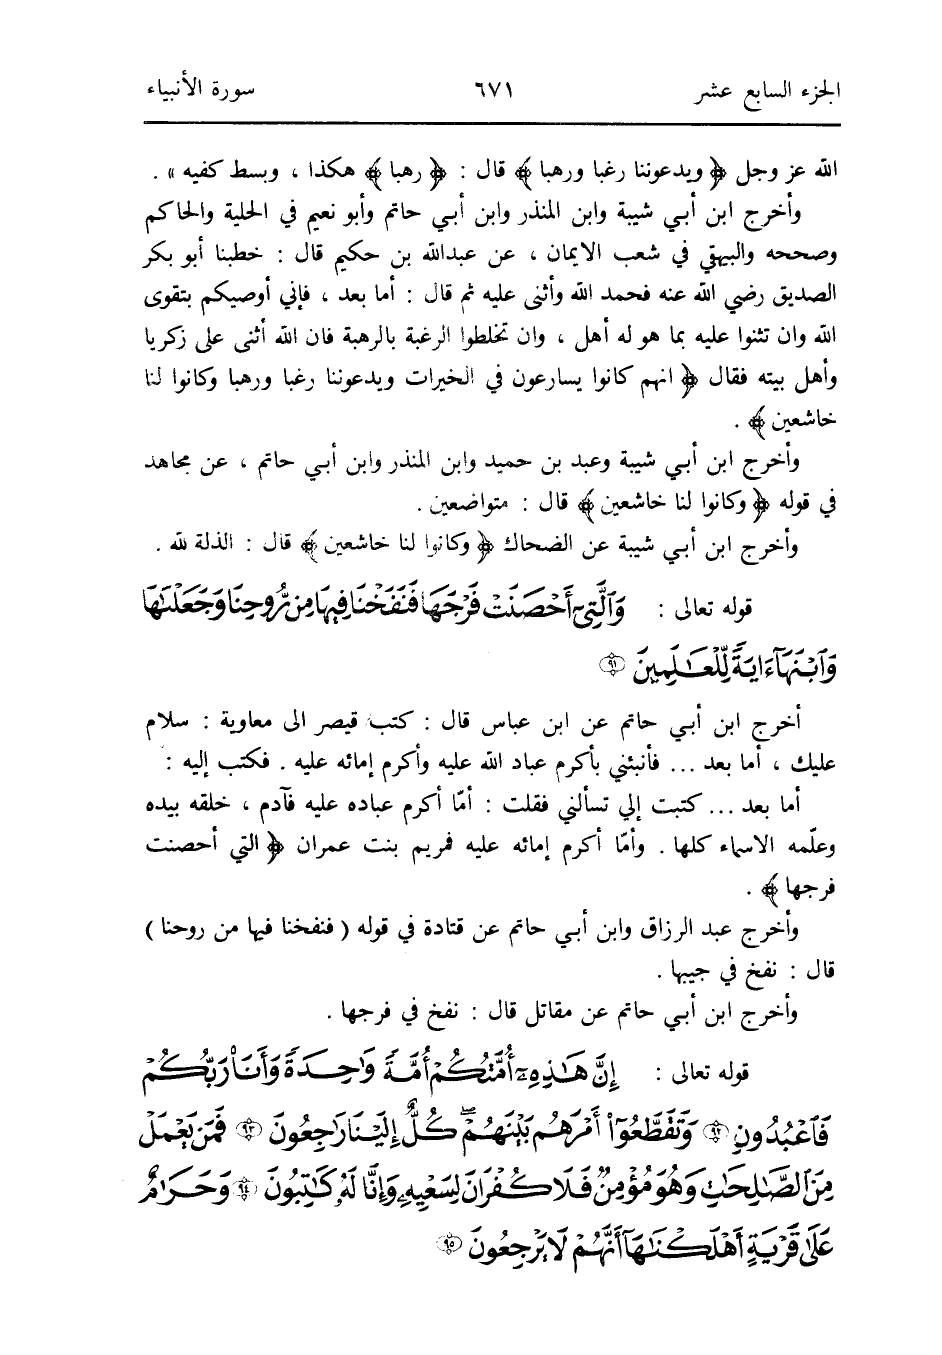 الجزء السابع عشر ٦٧١ سورة الأنبياء
الله عز وجل ﴿ ويدعوننا رغبا ورهبا ﴾ قال : ﴿ رهبا ﴾ هكذا ، وبسط كفيه » .
وأخرج ابن أبي شيبة وابن المنذر وابن أبي حاتم وأبو نعيم في الحلية والحاكم
وصححه والبيهقي في شعب الايمان ، عن عبدالله بن حكيم قال : خطبنا أبو بكر
الصديق رضي الله عنه فحمد الله وأثنى عليه ثم قال : أما بعد ، فإني أوصيكم بتقوى
الله وان تثنوا عليه بما هو له أهل ، وان تخلطوا الرغبة بالرهبة فان الله أثنى على زكريا
وأهل بيته فقال ﴿ انهم كانوا يسارعون في الخيرات ويدعوننا رغبا ورهبا وكانوا لنا
خاشعين ﴾ .
وأخرج ابن أبي شيبة وعبد بن حميد وابن المنذر وابن أبي حاتم ، عن مجاهد
في قوله ﴿ وكانوا لنا خاشعين ﴾ قال : متواضعين .
وأخرج ابن أبي شيبة عن الضحاك ﴿ وكانوا لنا خاشعين ﴾ قال : الذلة لله .
قوله تعالى : وَٱلَّتِىٓ أَحْصَنَتْ فَرْجَهَا فَنَفَخْنَا فِيهَا مِن رُّوحِنَا وَجَعَلْنَٰهَا
وَٱبْنَهَآ ءَايَةً لِّلْعَٰلَمِينَ ٩١
أخرج ابن أبي حاتم عن ابن عباس قال : كتب قيصر الى معاوية : سلام
عليك ، أما بعد ... فأنبئني بأكرم عباد الله عليه وأكرم إمائه عليه . فكتب إليه :
أما بعد ... كتبت إلي تسألني فقلت : أمّا أكرم عباده عليه فآدم ، خلقه بيده
وعلّمه الاسماء كلها . وأمّا أكرم إمائه عليه فمريم بنت عمران ﴿ التي أحصنت
فرجها ﴾ .
وأخرج عبد الرزاق وابن أبي حاتم عن قتادة في قوله ( فنفخنا فيها من روحنا )
قال : نفخ في جيبها .
وأخرج ابن أبي حاتم عن مقاتل قال : نفخ في فرجها .
قوله تعالى : إِنَّ هَٰذِهِۦٓ أُمَّتُكُمْ أُمَّةً وَٰحِدَةً وَأَنَا۠ رَبُّكُمْ
فَٱعْبُدُونِ ٩٢ وَتَقَطَّعُوٓا۟ أَمْرَهُم بَيْنَهُمْ ۖ كُلٌّ إِلَيْنَا رَٰجِعُونَ ٩٣ فَمَن يَعْمَلْ
مِنَ ٱلصَّٰلِحَٰتِ وَهُوَ مُؤْمِنٌ فَلَا كُفْرَانَ لِسَعْيِهِۦ وَإِنَّا لَهُۥ كَٰتِبُونَ ٩٤ وَحَرَٰمٌ
عَلَىٰ قَرْيَةٍ أَهْلَكْنَٰهَآ أَنَّهُمْ لَا يَرْجِعُونَ ٩٥